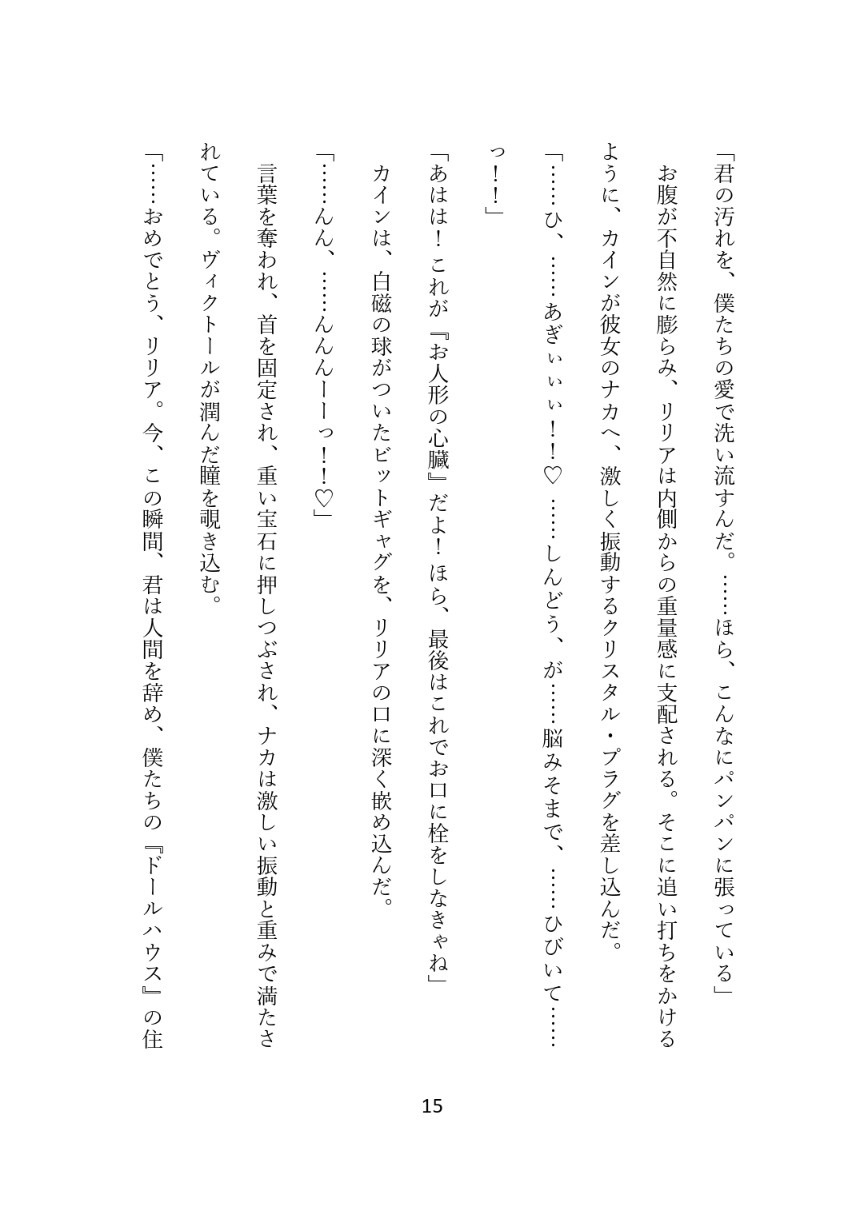 「君の汚れを、僕たちの愛で洗い流すんだ。……ほら、こんなにパンパンに張っている」
　お腹が不自然に膨らみ、リリアは内側からの重量感に支配される。そこに追い打ちをかける
ように、カインが彼女のナカへ、激しく振動するクリスタル・プラグを差し込んだ。
「……ひ、……あぎぃぃぃ！！♡……しんどう、が……脳みそまで、……ひびいて……
っ！！」
「あはは！これが『お人形の心臓』だよ！ほら、最後はこれでお口に栓をしなきゃね」
　カインは、白磁の球がついたビットギャグを、リリアの口に深く嵌め込んだ。
「……んん、……んんんーーっ！！♡」
　言葉を奪われ、首を固定され、重い宝石に押しつぶされ、ナカは激しい振動と重みで満たさ
れている。ヴィクトールが潤んだ瞳を覗き込む。
「……おめでとう、リリア。今、この瞬間、君は人間を辞め、僕たちの『ドールハウス』の住
15